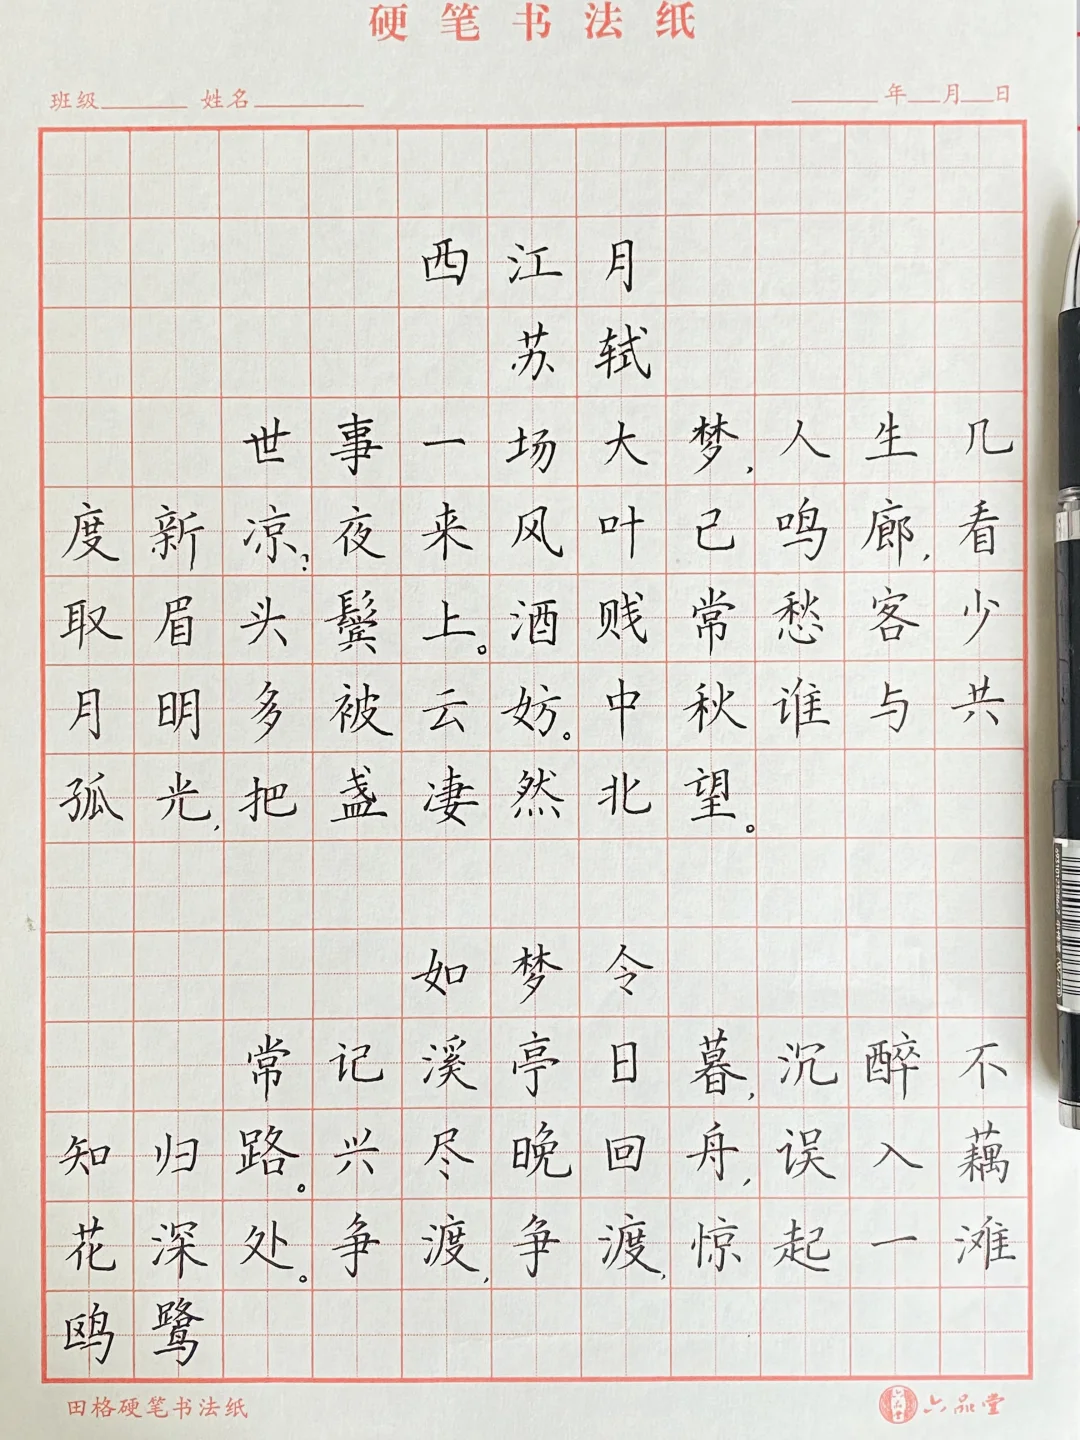 硬笔书法纸
班级 姓名 年 月 日
西江月
苏轼
世事一场大梦,人生几
度新凉?夜来风叶已鸣廊,看
取眉头鬓上。酒贱常愁客少
月明多被云妨。中秋谁与共
孤光,把盏凄然北望。
如梦令
常记溪亭日暮,沉醉不
知归路。兴尽晚回舟,误入藕
花深处。争渡,争渡,惊起一滩
鸥鹭
田格硬笔书法纸 六品堂